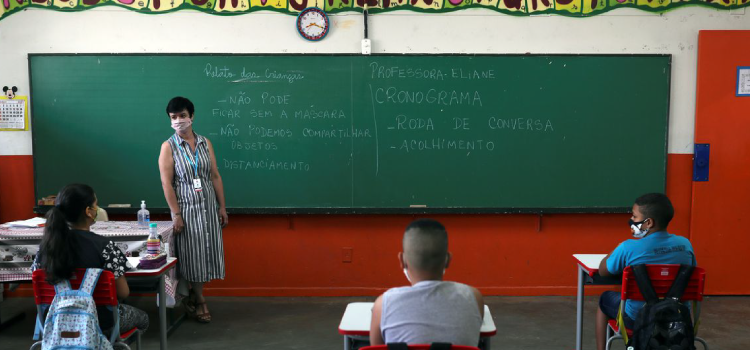 Relato das Crianças
- NÃO PODE
FICAR SEM A MÁSCARA
- NÃO PODEMOS COMPARTILHAR
OBJETOS
DISTANCIAMENTO
PROFESSORA: ELIANE
CRONOGRAMA
- RODA DE CONVERSA
- ACOLHIMENTO